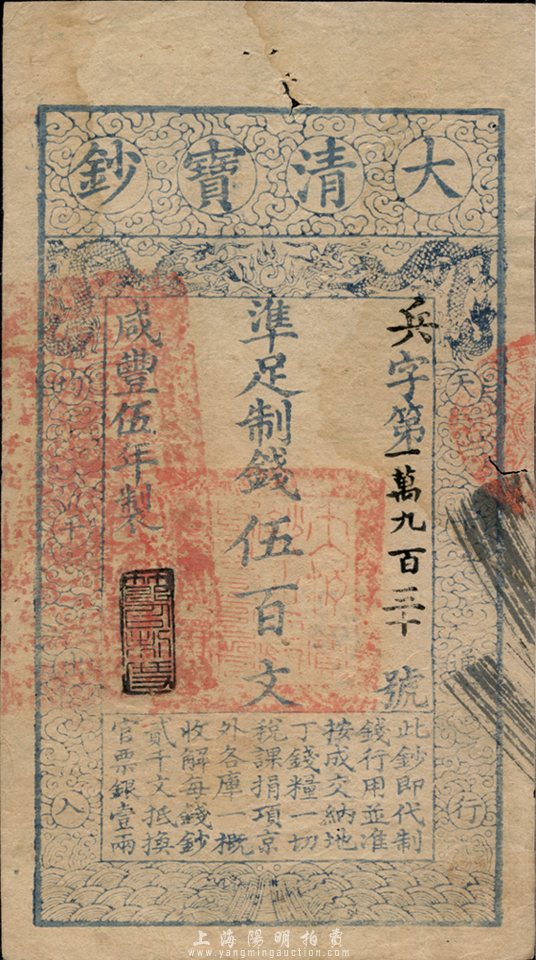 大清寶鈔
兵字第一萬九百三十號
準足制錢伍百文
咸豐伍年製
天
行
入
此鈔即代制
錢行用並准
按成交納地
丁錢糧一切
稅課捐項京
外各庫一概
收解每錢鈔
貳千文抵換
官票銀壹兩
上海陽明拍賣
www.yangmingauction.com